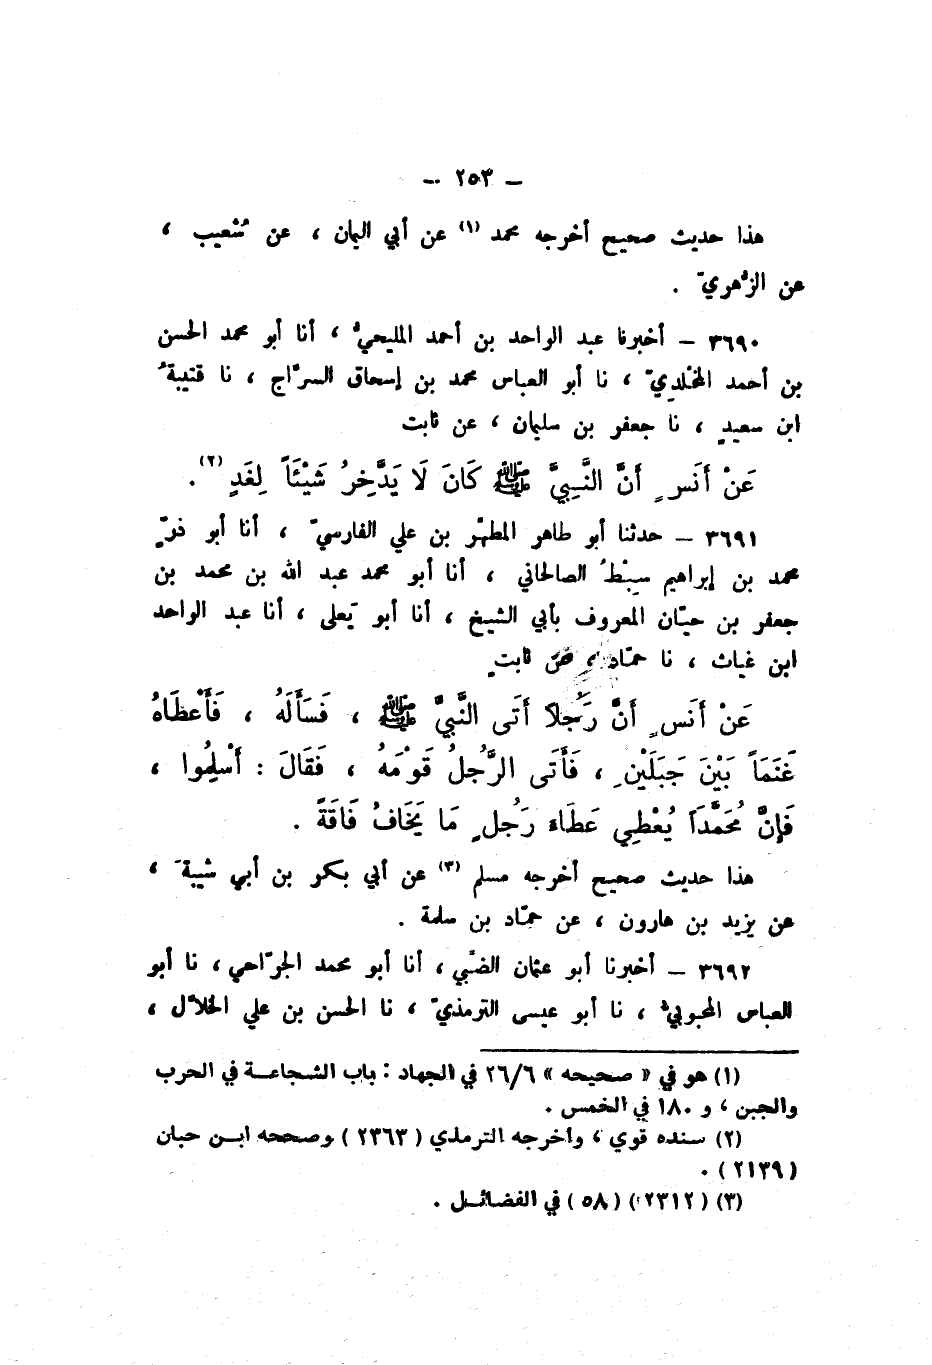 – ٢٥٣ –
هذا حديث صحيح أخرجه محمد (١) عن أبي اليمان ، عن شُعيب ،
عن الزُّهريّ .
٣٦٩٠ – أخبرنا عبد الواحد بن أحمد المليحيُّ ، أنا أبو محمد الحسن
بن أحمد المَخْلَديّ ، نا أبو العباس محمد بن إسحاق السرَّاج ، نا قتيبةُ
ابن سعيدٍ ، نا جعفر بن سليمان ، عن ثابت
عَنْ أَنَسٍ أَنَّ النَّبِيَّ ﷺ كَانَ لَا يَدَّخِرُ شَيْئَاً لِغَدٍ (٢) .
٣٦٩١ – حدثنا أبو طاهر المطهّر بن علي الفارسيّ ، أنا أبو ذرّ
محمد بن إبراهيم سِبْطُ الصالحاني ، أنا أبو محمد عبد الله بن محمد بن
جعفر بن حيّان المعروف بأبي الشيخ ، أنا أبو يَعلى ، أنا عبد الواحد
ابن غياث ، نا حمّاد ، عن ثابتٍ
عَنْ أَنَسٍ أَنَّ رَجُلاً أَتَى النَّبِيَّ ﷺ ، فَسَأَلَهُ ، فَأَعْطَاهُ
غَنَمَاً بَيْنَ جَبَلَيْنِ ، فَأَتَى الرَّجُلُ قَوْمَهُ ، فَقَالَ : أَسْلِمُوا ،
فَإِنَّ مُحَمَّدَاً يُعْطِي عَطَاءَ رَجُلٍ مَا يَخَافُ فَاقَةً .
هذا حديث صحيح أخرجه مسلم (٣) عن أبي بكر بن أبي شيبةَ ،
عن يزيد بن هارون ، عن حمّاد بن سلمة .
٣٦٩٢ – أخبرنا أبو عثمان الضبّي ، أنا أبو محمد الجرّاحي ، نا أبو
العباس المحبوبيُّ ، نا أبو عيسى الترمذيّ ، نا الحسن بن علي الخلاَّل ،
(١) هو في « صحيحه » ٢٦/٦ في الجهاد : باب الشجاعة في الحرب
والجبن ، و ١٨٠ في الخمس .
(٢) سنده قوي ، وأخرجه الترمذي ( ٢٣٦٣ ) وصححه ابن حبان
( ٢١٣٩ ) .
(٣) ( ٢٣١٢ ) ( ٥٨ ) في الفضائل .